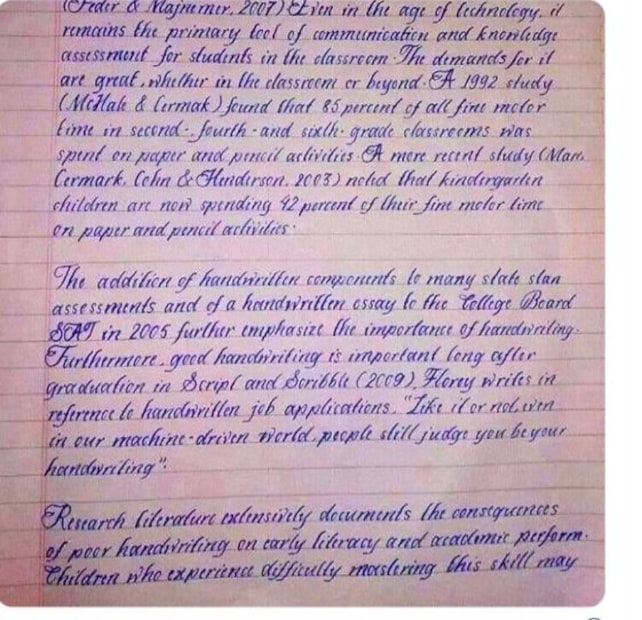 (Feder & Majnemer, 2007) Even in the age of technology, it
remains the primary tool of communication and knowledge
assessment for students in the classroom. The demands for it
are great, whether in the classroom or beyond. A 1992 study
(McHale & Cermak) found that 85 percent of all fine motor
time in second-, fourth-and sixth-grade classrooms was
spent on paper and pencil activities. A more recent study (Marr,
Cermark, Cohn & Henderson, 2003) noted that kindergarten
children are now spending 42 percent of their fine motor time
on paper and pencil activities.
The addition of handwritten components to many state stan
assessments and of a handwritten essay to the College Board
SAT in 2005 further emphasize the importance of handwriting.
Furthermore, good handwriting is important long after
graduation in Script and Scribble (2009), Florey writes in
reference to handwritten job applications, "Like it or not, even
in our machine-driven world, people still judge you be your
handwriting".
Research literature extensively documents the consequences
of poor handwriting on early literacy and academic perform.
Children who experience difficulty mastering this skill may